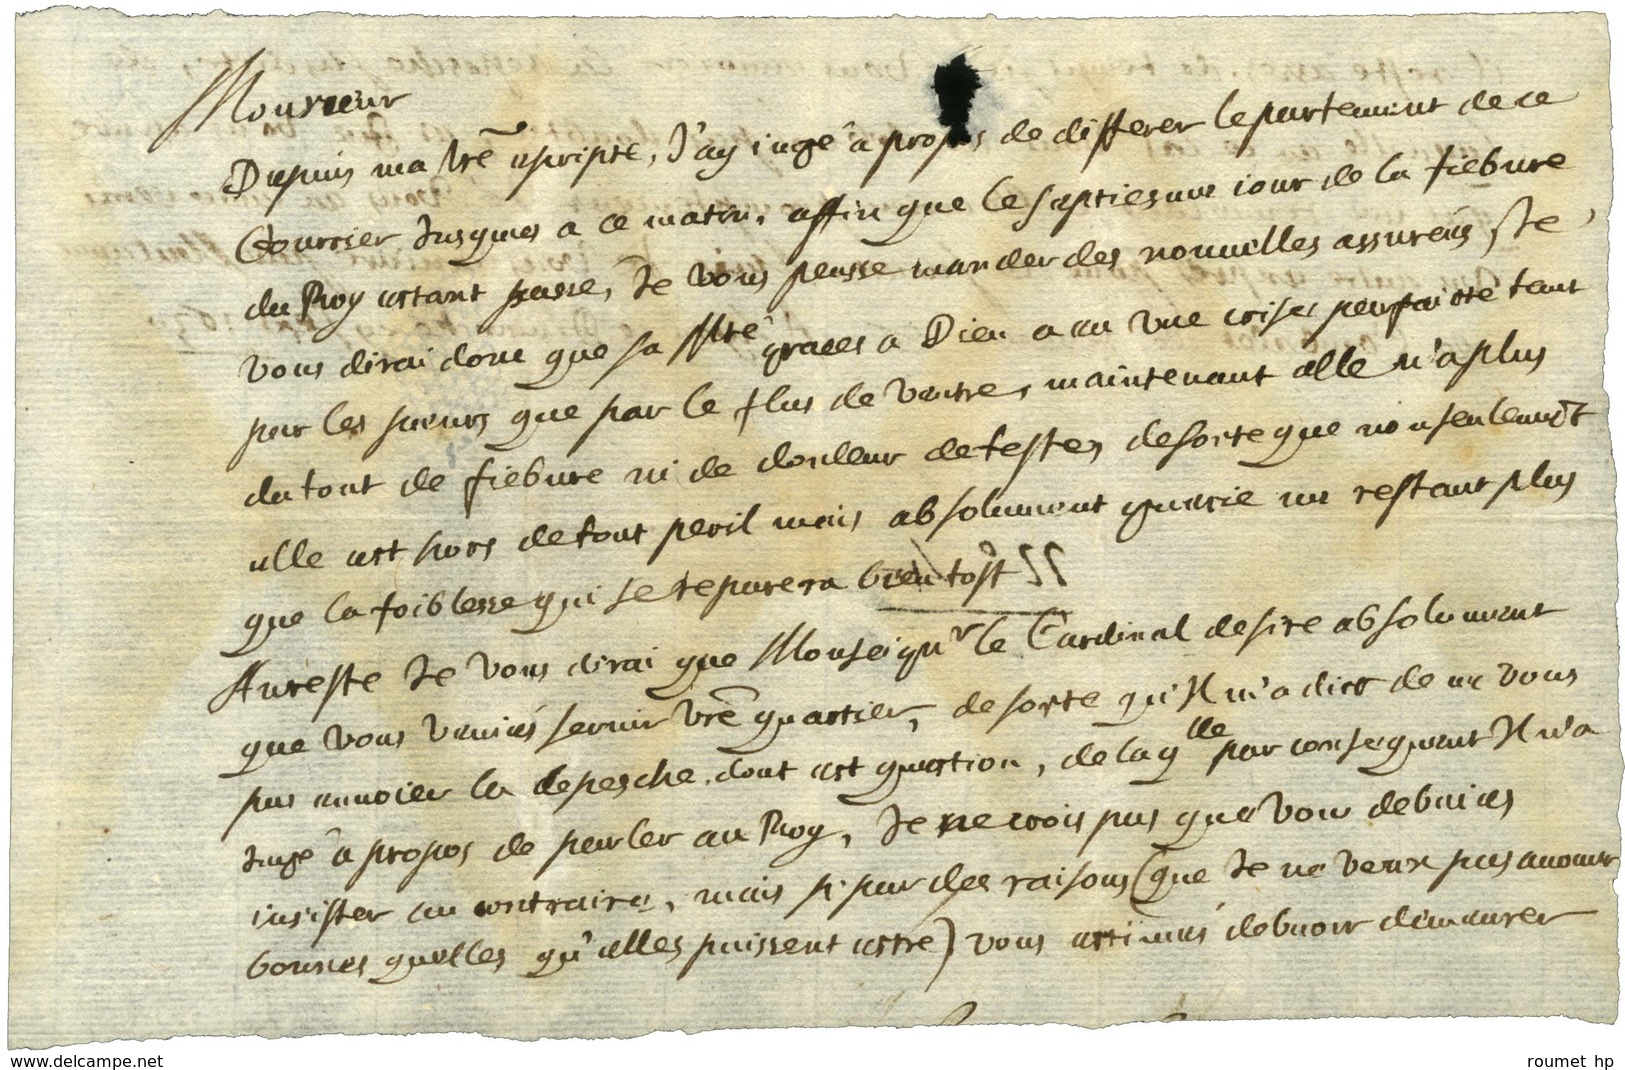 Monsieur
Depuis ma lrē escripte, J'ay iugé à propos de differer le partement de ce
Courrier Jusques a ce matin, affin que le septiesme iour de la fiebure
du Roy estant passé, Je vous peusse mander des nouuelles assureés, Je
vous dirai donc que sa Mté graces a Dieu a eu vne crise sy parfaitte tant
par les sueurs que par le flus de ventre, maintenant elle n'a plus
du tout de fiebure ni de douleur de teste, de sorte que non seulemēt
elle est hors de tout peril mais absolument guarie ne restant plus
que la foiblesse qui se reparera bien tost
Au reste Je vous dirai que Monseignr le Cardinal desire absolument
que vous veniés seruir vrē quartier, de sorte qu'Il m'a dict de ne vous
pas enuoier la depesche dont est question, de laqlle par consequent Il n'a
Jugé à propos de parler au Roy, Je ne crois pas que vous debuiés
insister au contraire, mais si par des raisons (que Je ne veux pas auouer
bonnes quelles qu'elles puissent estre) vous estimiés debuoir demeurer
www.delcampe.net
roumet hp